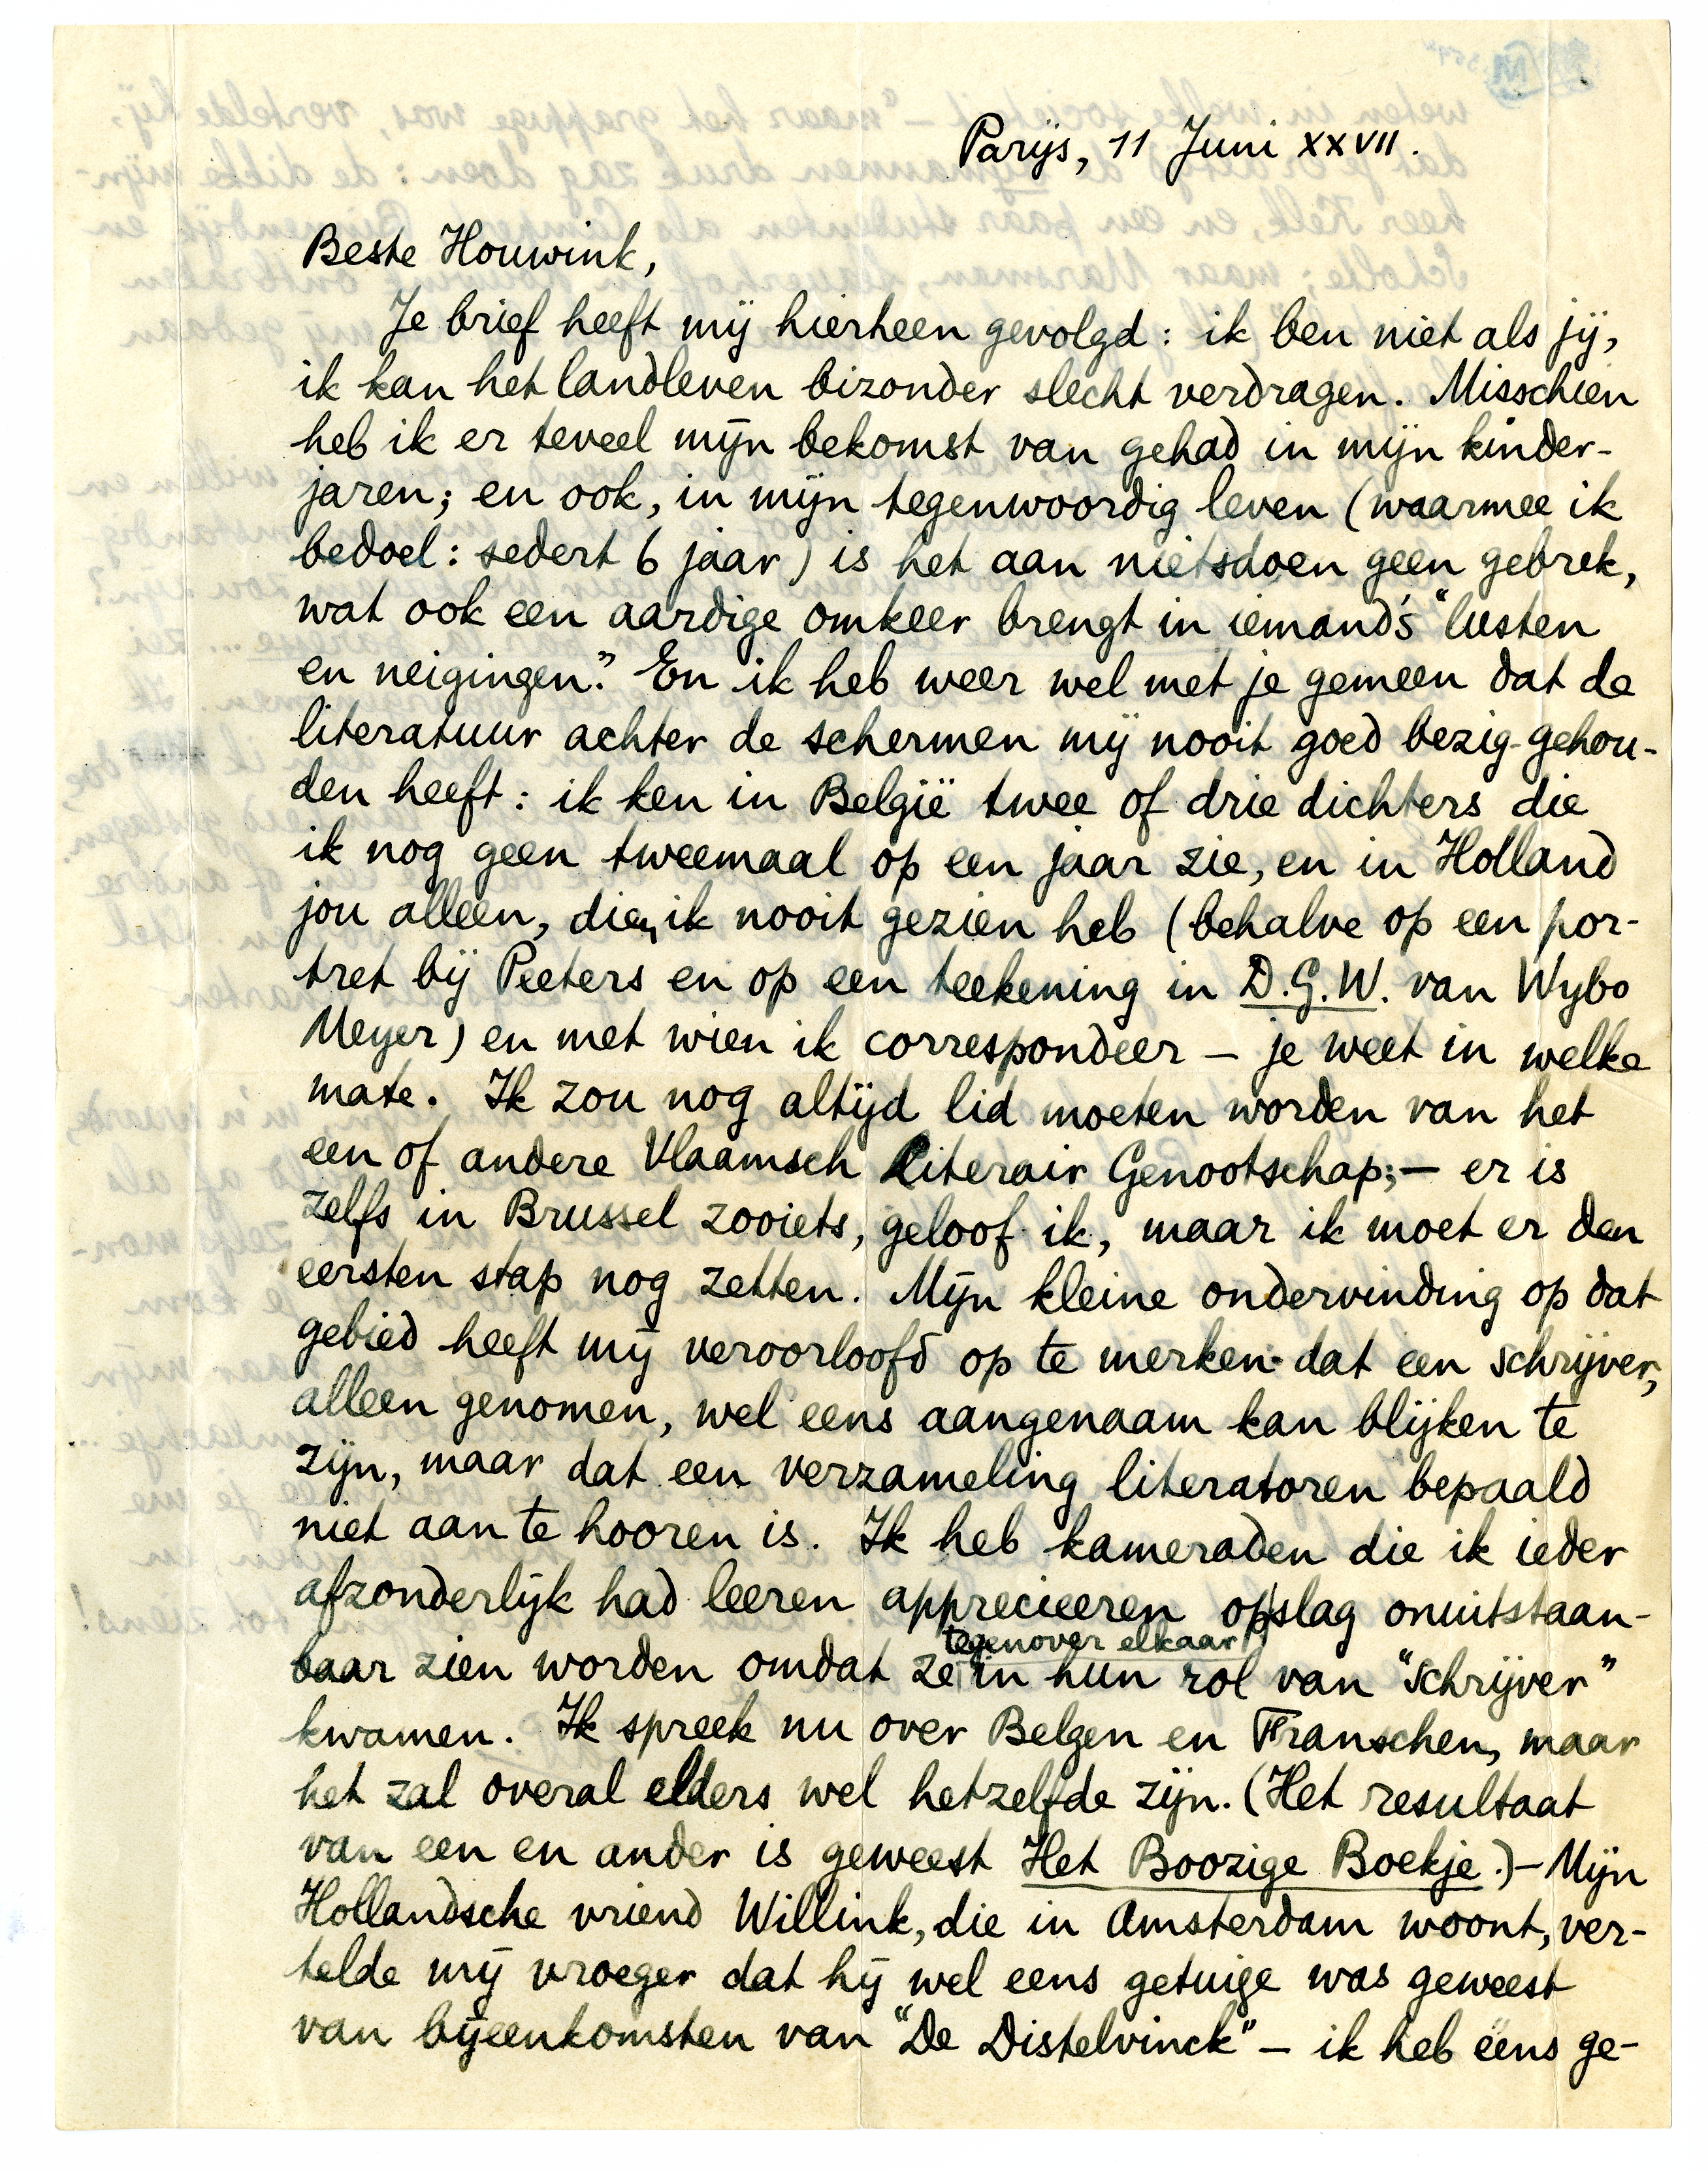 Parijs, 11 Juni XXVII.
Beste Houwink,
Je brief heeft mij hierheen gevolgd: ik ben niet als jij,
ik kan het landleven bizonder slecht verdragen. Misschien
heb ik er teveel mijn bekomst van gehad in mijn kinder-
jaren; en ook, in mijn tegenwoordig leven (waarmee ik
bedoel: sedert 6 jaar) is het aan nietsdoen geen gebrek,
wat ook een aardige omkeer brengt in iemand's "lusten
en neigingen." En ik heb weer wel met je gemeen dat de
literatuur achter de schermen mij nooit goed bezig-gehou-
den heeft: ik ken in België twee of drie dichters die
ik nog geen tweemaal op een jaar zie, en in Holland
jou alleen, dien ik nooit gezien heb (behalve op een por-
tret bij Peeters en op een teekening in D.G.W. van Wybo
Meyer) en met wien ik correspondeer – je weet in welke
mate. Ik zou nog altijd lid moeten worden van het
een of andere Vlaamsch Literair Genootschap; – er is
zelfs in Brussel zooiets, geloof ik, maar ik moet er den
eersten stap nog zetten. Mijn kleine ondervinding op dat
gebied heeft mij veroorloofd op te merken dat een schrijver,
alleen genomen, wel eens aangenaam kan blijken te
zijn, maar dat een verzameling literatoren bepaald
niet aan te hooren is. Ik heb kameraden die ik ieder
afzonderlijk had leeren apprecieeren opslag onuitstaan-
baar zien worden omdat ze tegenover elkaar in hun rol van "schrijver"
kwamen. Ik spreek nu over Belgen en Franschen, maar
het zal overal elders wel hetzelfde zijn. (Het resultaat
van een en ander is geweest Het Boozige Boekje.) – Mijn
Hollandsche vriend Willink, die in Amsterdam woont, ver-
telde mij vroeger dat hij wel eens getuige was geweest
van bijeenkomsten van "De Distelvinck" – ik heb eens ge-